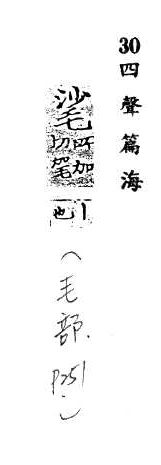 30 四聲篇海
㲚 所加切毠
｜也
(毛部.P251.)